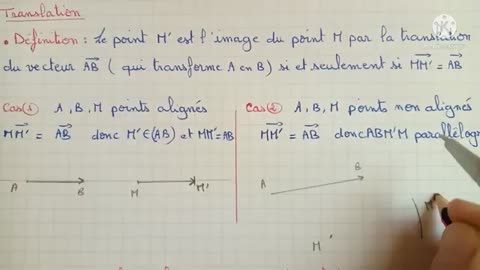 Translation
• Définition : Le point M' est l'image du point M par la translation
du vecteur AB (qui transforme A en B) si et seulement si MM' = AB
Cas① A, B, M points alignés
MM' = AB donc M'∈(AB) et MM'=AB
A B M M'
Cas② A, B, M points non alignés
MM' = AB donc ABM'M parallélogr
B
A
M'
M'